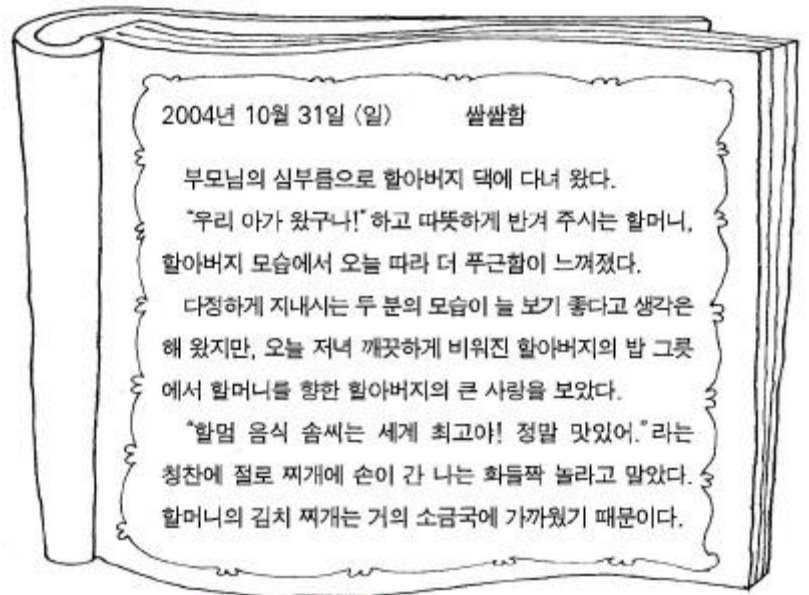 2004년 10월 31일 (일) 쌀쌀함
부모님의 심부름으로 할아버지 댁에 다녀 왔다.
"우리 아가 왔구나!" 하고 따뜻하게 반겨 주시는 할머니,
할아버지 모습에서 오늘 따라 더 푸근함이 느껴졌다.
다정하게 지내시는 두 분의 모습이 늘 보기 좋다고 생각은
해 왔지만, 오늘 저녁 깨끗하게 비워진 할아버지의 밥 그릇
에서 할머니를 향한 할아버지의 큰 사랑을 보았다.
"할멈 음식 솜씨는 세계 최고야! 정말 맛있어."라는
칭찬에 절로 찌개에 손이 간 나는 화들짝 놀라고 말았다.
할머니의 김치 찌개는 거의 소금국에 가까웠기 때문이다.